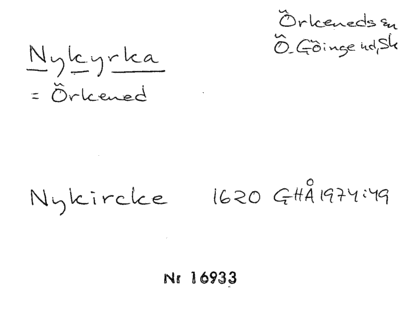 Nykyrka
= Örkened
Örkeneds sn
Ö. Göinge hd, Sk
Nykircke 1620 GHÅ 1974:49
Nr 16933